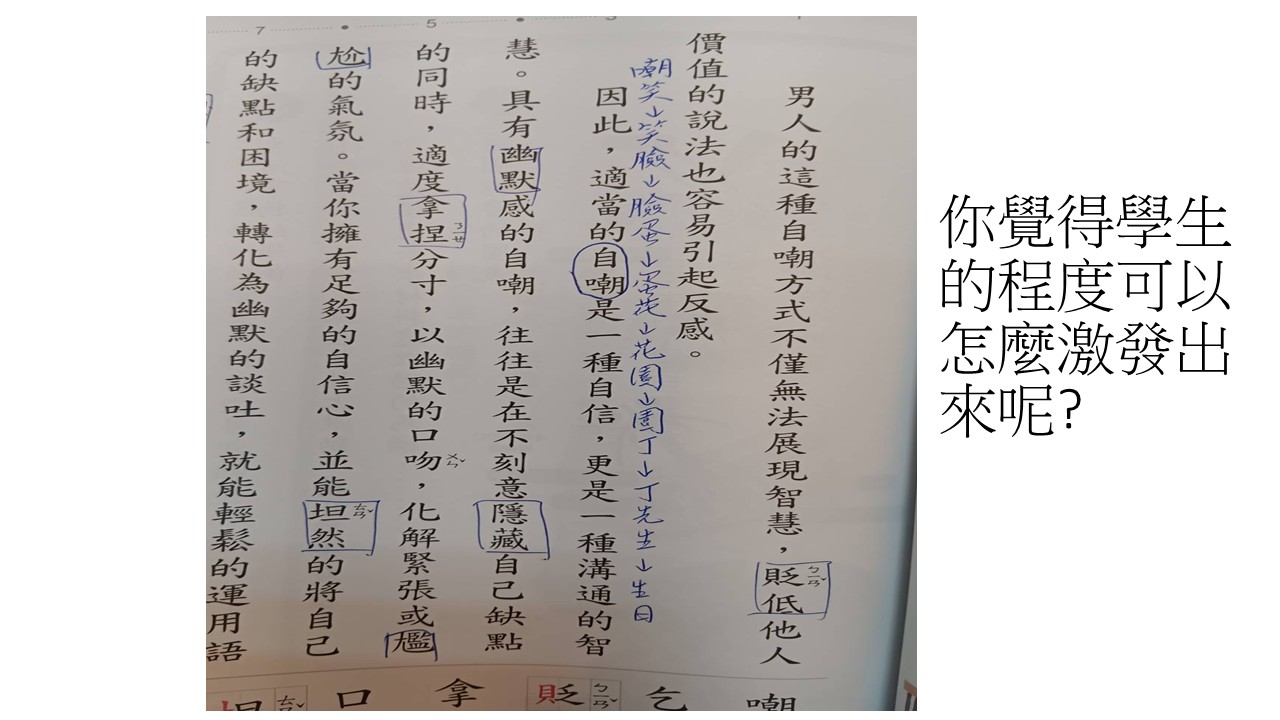 7
5
男人的這種自嘲方式不僅無法展現智慧，貶ㄅㄧㄢˇ低他人
價值的說法也容易引起反感。
嘲笑↓笑臉↓臉蛋↓蛋花↓花園↓園丁↓丁先生↓生日
因此，適當的自嘲是一種自信，更是一種溝通的智
慧。具有幽默感的自嘲，往往是在不刻意隱藏自己缺點
的同時，適度拿捏ㄋㄧㄝ分寸，以幽默的口吻ㄨㄣˇ，化解緊張或尷
尬的氣氛。當你擁有足夠的自信心，並能坦ㄊㄢˇ然的將自己
的缺點和困境，轉化為幽默的談吐，就能輕鬆的運用語
嘲
乞
貶ㄅㄧㄢˇ
拿
口
坦ㄊㄢˇ
你覺得學生
的程度可以
怎麼激發出
來呢?